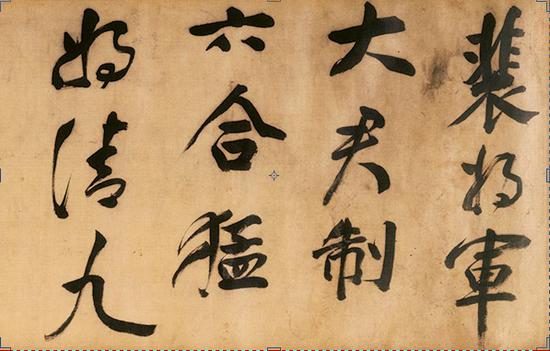 裴將軍
大君制
六合猛
將清九